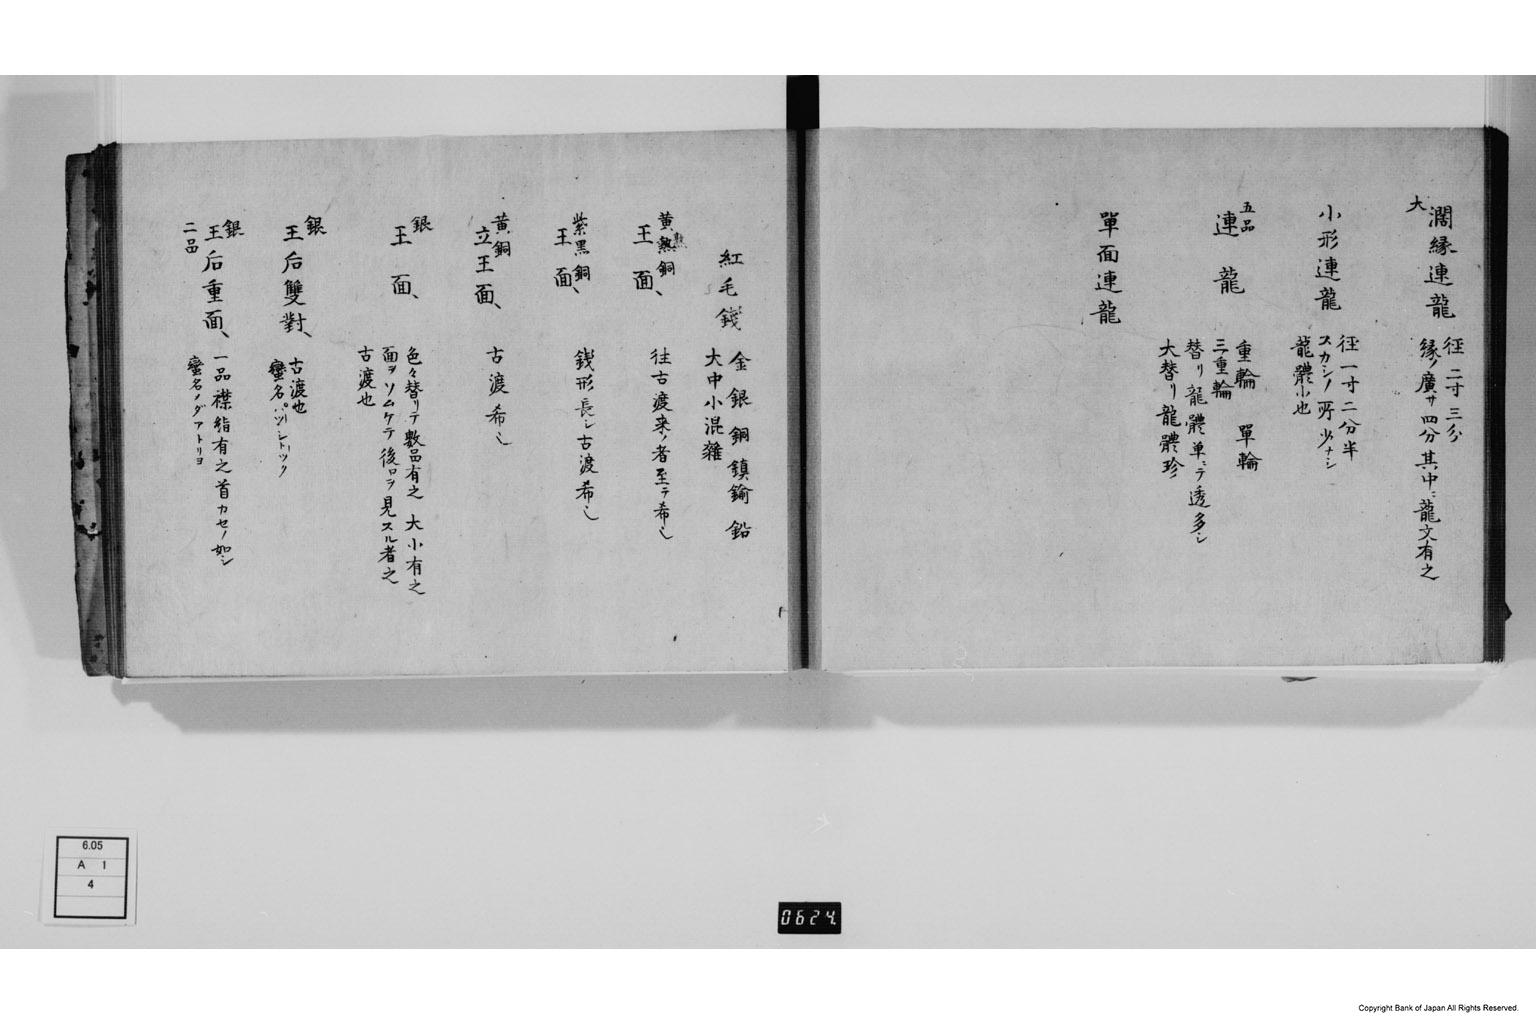 大
濶縁連龍
徑二寸三分
縁ノ廣サ四分其中ニ龍文有之
小形連龍
徑一寸二分半
スカシノ所少ナシ
龍體小也
五品
連龍
重輪 單輪
三重輪
替リ龍體单ニテ透多シ
大替リ龍體珍
單面連龍
紅毛錢
金銀銅鎮鍮鉛
大中小混雜
黄熟銅
王面、
往古渡来ノ者至テ希シ
紫黑銅
王面、
銭形長シ古渡希シ
黄銅
立王面、
古渡希シ
銀
王面、
色々替リテ數品有之 大小有之
面ヲソムケテ後ロヲ見スル者之
古渡也
銀
王后雙對、
古渡也
蠻名パツシトツク
銀
王后重面、
二品
一品襟指有之首カセノ如シ
蠻名ノダアトリヨ
6.05
A 1
4
0624
Copyright Bank of Japan All Rights Reserved.